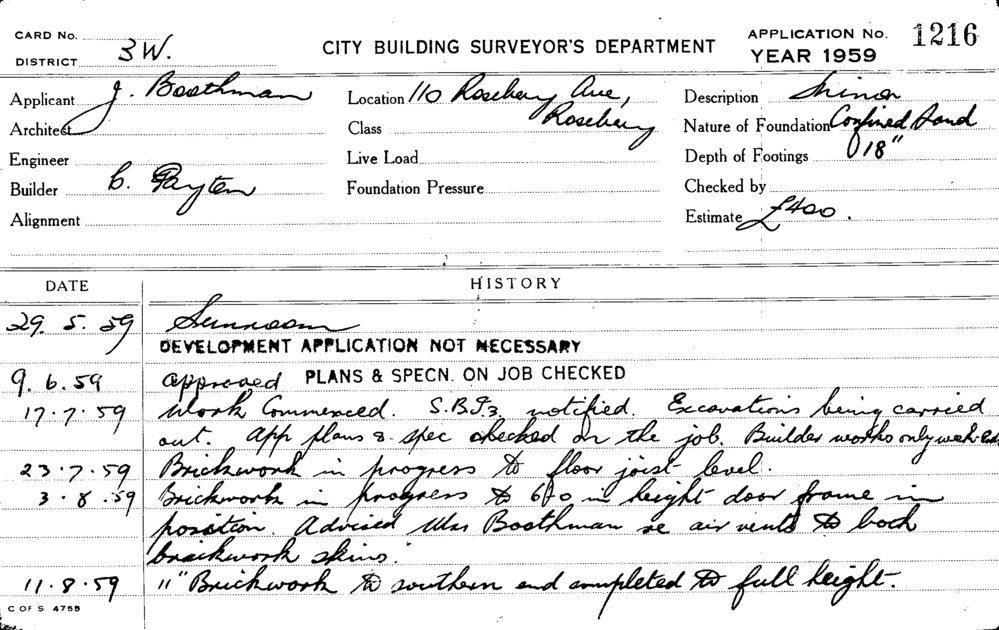 CARD No. 3W.
DISTRICT
CITY BUILDING SURVEYOR'S DEPARTMENT
APPLICATION No. 1216
YEAR 1959
Applicant J. Boothman
Location 110 Rosebery Ave,
Rosebery
Description Minor
Architect
Class
Nature of Foundation Confined Sand
Engineer
Live Load
Depth of Footings 18"
Builder C. Payten
Foundation Pressure
Checked by
Alignment
Estimate £400.
DATE HISTORY
29.5.59 Sunroom
DEVELOPMENT APPLICATION NOT NECESSARY
9.6.59 approved PLANS & SPECN. ON JOB CHECKED
17.7.59 Work Commenced. notified. Excavations being carried
out. App plans & spec checked on the job. Builder works only
23.7.59 Brickwork in progress to floor joist level.
3.8.59 Brickwork in progress to in height door frame in
position. Advised Mrs Boothman re air vents to both
brickwork skins.
11.8.59 11" Brickwork to southern end completed to full height.
C OF S 4755